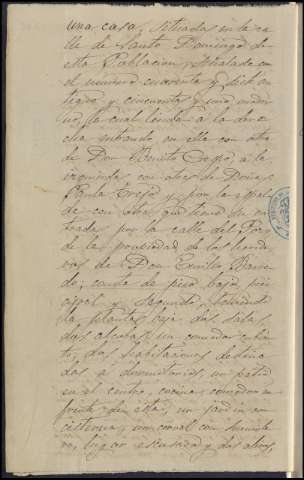 una casa, situada en la ca-
lle de Santo Domingo de
esta Poblacion, señalada con
el numero cuarenta y siete an-
tiguo y cincuenta y uno moder-
no, la cual linda a la dere-
cha entrando en ella con otra
de Don Benito Crespo, a la
izquierda con otra de Doña
Paula Crespo y por la espal-
da con otra que tiene su en-
trada por la calle del
de la propiedad de los herede-
ros de Don Emilio
consta de piso bajo, prin-
cipal y segundo,
la planta baja dos salas,
dos alcobas, un comedor
dos habitaciones destina-
das a dormitorios, un patio
en el centro, cocina, comedor en
frente de esta, un jardin con
cisterna, un corral con
ro, lugar escusado y dos